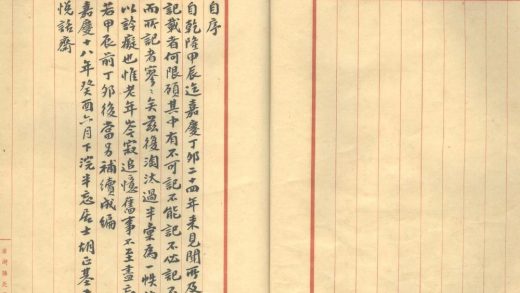 自序
自乾隆甲辰迄嘉慶丁卯二十四年來見聞所及
記載者何限顧其中有不可記不能記不必記不
而所記者寥寥矣茲後淘汰過半彙爲一帙
以詅癡也惟老年岑寂追憶舊事不至盡忘
若甲辰前丁卯後當另補續成編
嘉慶十八年癸酉六月下浣半忘居士胡正基
悅詁齋